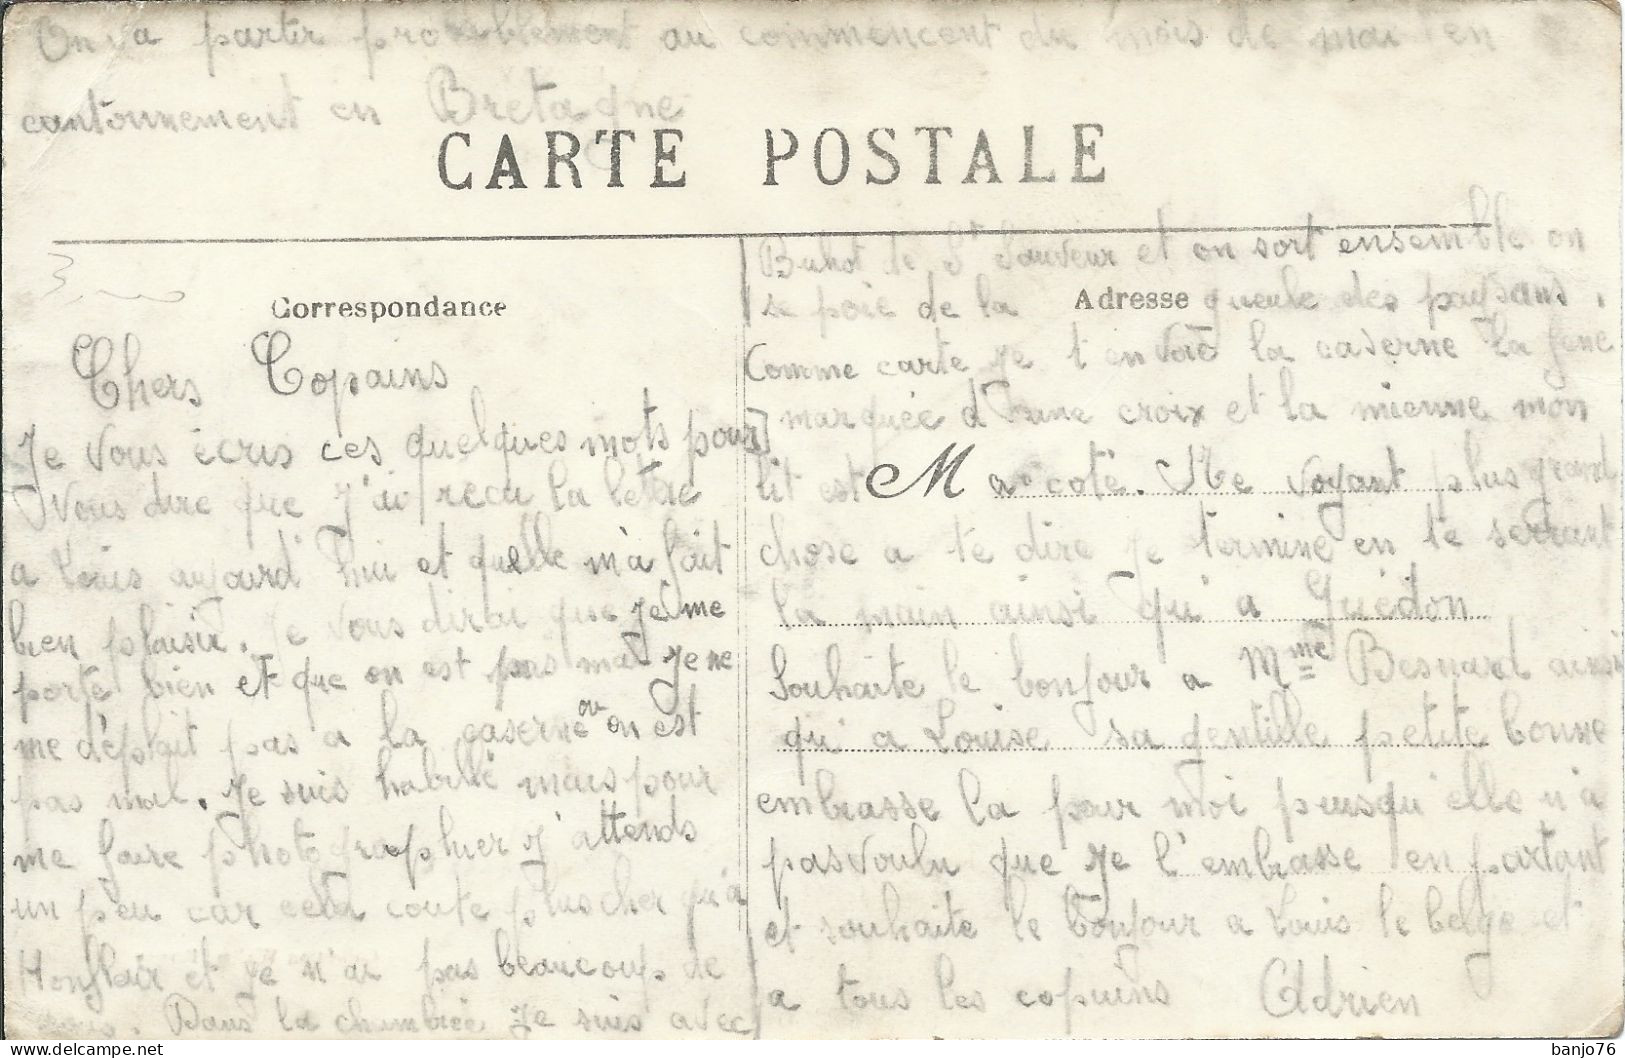 On va partir probablement au commencent du mois de mai en
cantonnement en Bretagne
CARTE POSTALE
Correspondance
Chers Copains
Je vous écris ces quelques mots pour
vous dire que j'ai recu la letre
a Louis aujourd'hui et quelle m'a fait
bien plaisir. Je vous dirai que Je me
porte bien et que on est pas mal Je ne
me déplait pas a la caserne ou on est
pas mal. Je suis habillé mais pour
me faire photographier J'attends
un peu car cela coute plus cher qu'a
Honfleur et Je n'ai pas beaucoup de
sous. Dans la chambrée Je suis avec
Buhot de St Sauveur et on sort ensemble on
se paie de la gueule des paysans.
Adresse
Comme carte Je t'envoie la caserne la fene
marquée d'une croix et la mienne mon
lit est a coté. Ne voyant plus grand
M
chose a te dire Je termine en te serrant
la main ainsi qu'a Guédon
Souhaite le bonjour a Mme Besnard ainsi
qu'a Louise sa gentille petite bonne
embrasse la pour moi puisqu'elle n'a
pas voulu que Je l'embrasse en partant
et souhaite le bonjour a Louis le belge et
a tous les copains Adrien
banjo76